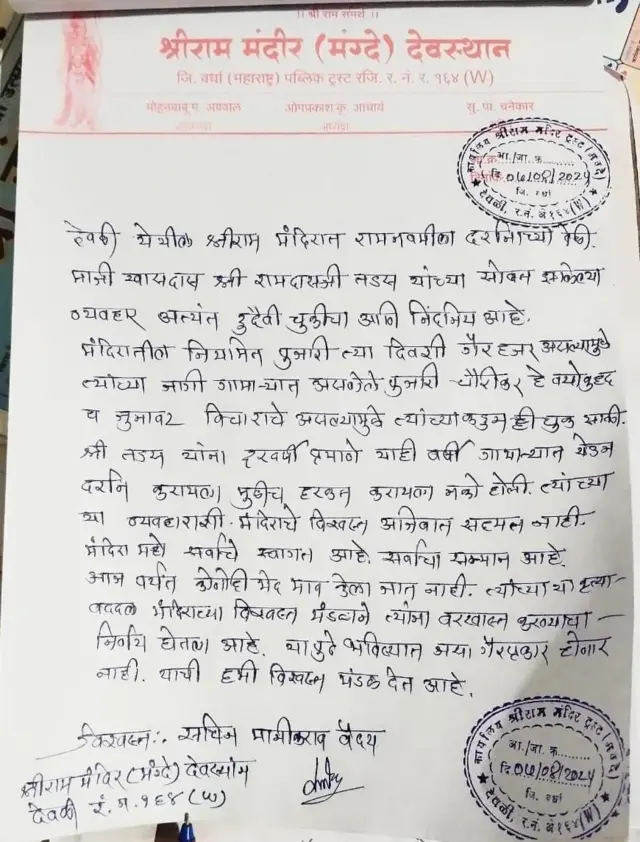 ।। श्री राम समर्थ ।।
श्रीराम मंदीर (मंग्दे) देवस्थान
जि. वर्धा (महाराष्ट्र) पब्लिक ट्रस्ट रजि. र. नं. र. १६४ (W)
मोहनबाबू म. अग्रवाल ओमप्रकाश कृ. आचार्य सु. पा. चनेकार
कार्यालय श्रीराम मंदिर ट्रस्ट (मंग्दे)
आ./जा. क्र.........
दि. 07/08/2025
जि. वर्धा
देवळी, र. नं. अे १६४ (W)
देवळी येथील श्रीराम मंदिरात रामनवमीला दर्शनाच्या वेळी.
माजी खासदार श्री रामदासजी तडस यांच्या सोबत झालेल्या
व्यवहार अत्यंत दुर्दैवी चुकीचा आणि निंदनिय आहे.
मंदिरातील नियमित पुजारी त्या दिवशी गैरहजर असल्यामुळे
त्यांच्या जागी गाभाऱ्यात असलेले पुजारी चौरीकर हे वयोवृद्ध
व जुनावट विचाराचे असल्यामुळे त्यांच्याकडुन ही चुक झाली.
श्री तडस यांना दरवर्षी प्रमाणे याही वर्षी गाभाऱ्यात येऊन
दर्शन करायला मुळीच हरकत करायला नको होती. त्यांच्या
या व्यवहाराशी मंदिराचे विश्वस्त अजिबात सहमत नाही.
मंदिरा मध्ये सर्वाचे स्वागत आहे. सर्वाचा सन्मान आहे.
आज पर्यंत कोणीही भेद भाव केला जात नाही. त्यांच्या या कृत्या-
बद्दल मंदिराच्या विश्वस्त मंडळाने त्यांना बरखास्त करण्याचा -
निर्णय घेतला आहे. या पुढे भविष्यात असा गैरप्रकार होणार
नाही. याची हमी विश्वस्त मंडळ देत आहे.
विश्वस्त:. सचिन माणीकराव वैद्य
श्रीराम मंदिर (मंग्दे) देवस्थान
देवळी रं. न. १६४ (W)
कार्यालय श्रीराम मंदिर ट्रस्ट (मंग्दे)
आ./जा. क्र.........
दि. 07/08/2025
जि. वर्धा
देवळी, र. नं. अे १६४ (W)